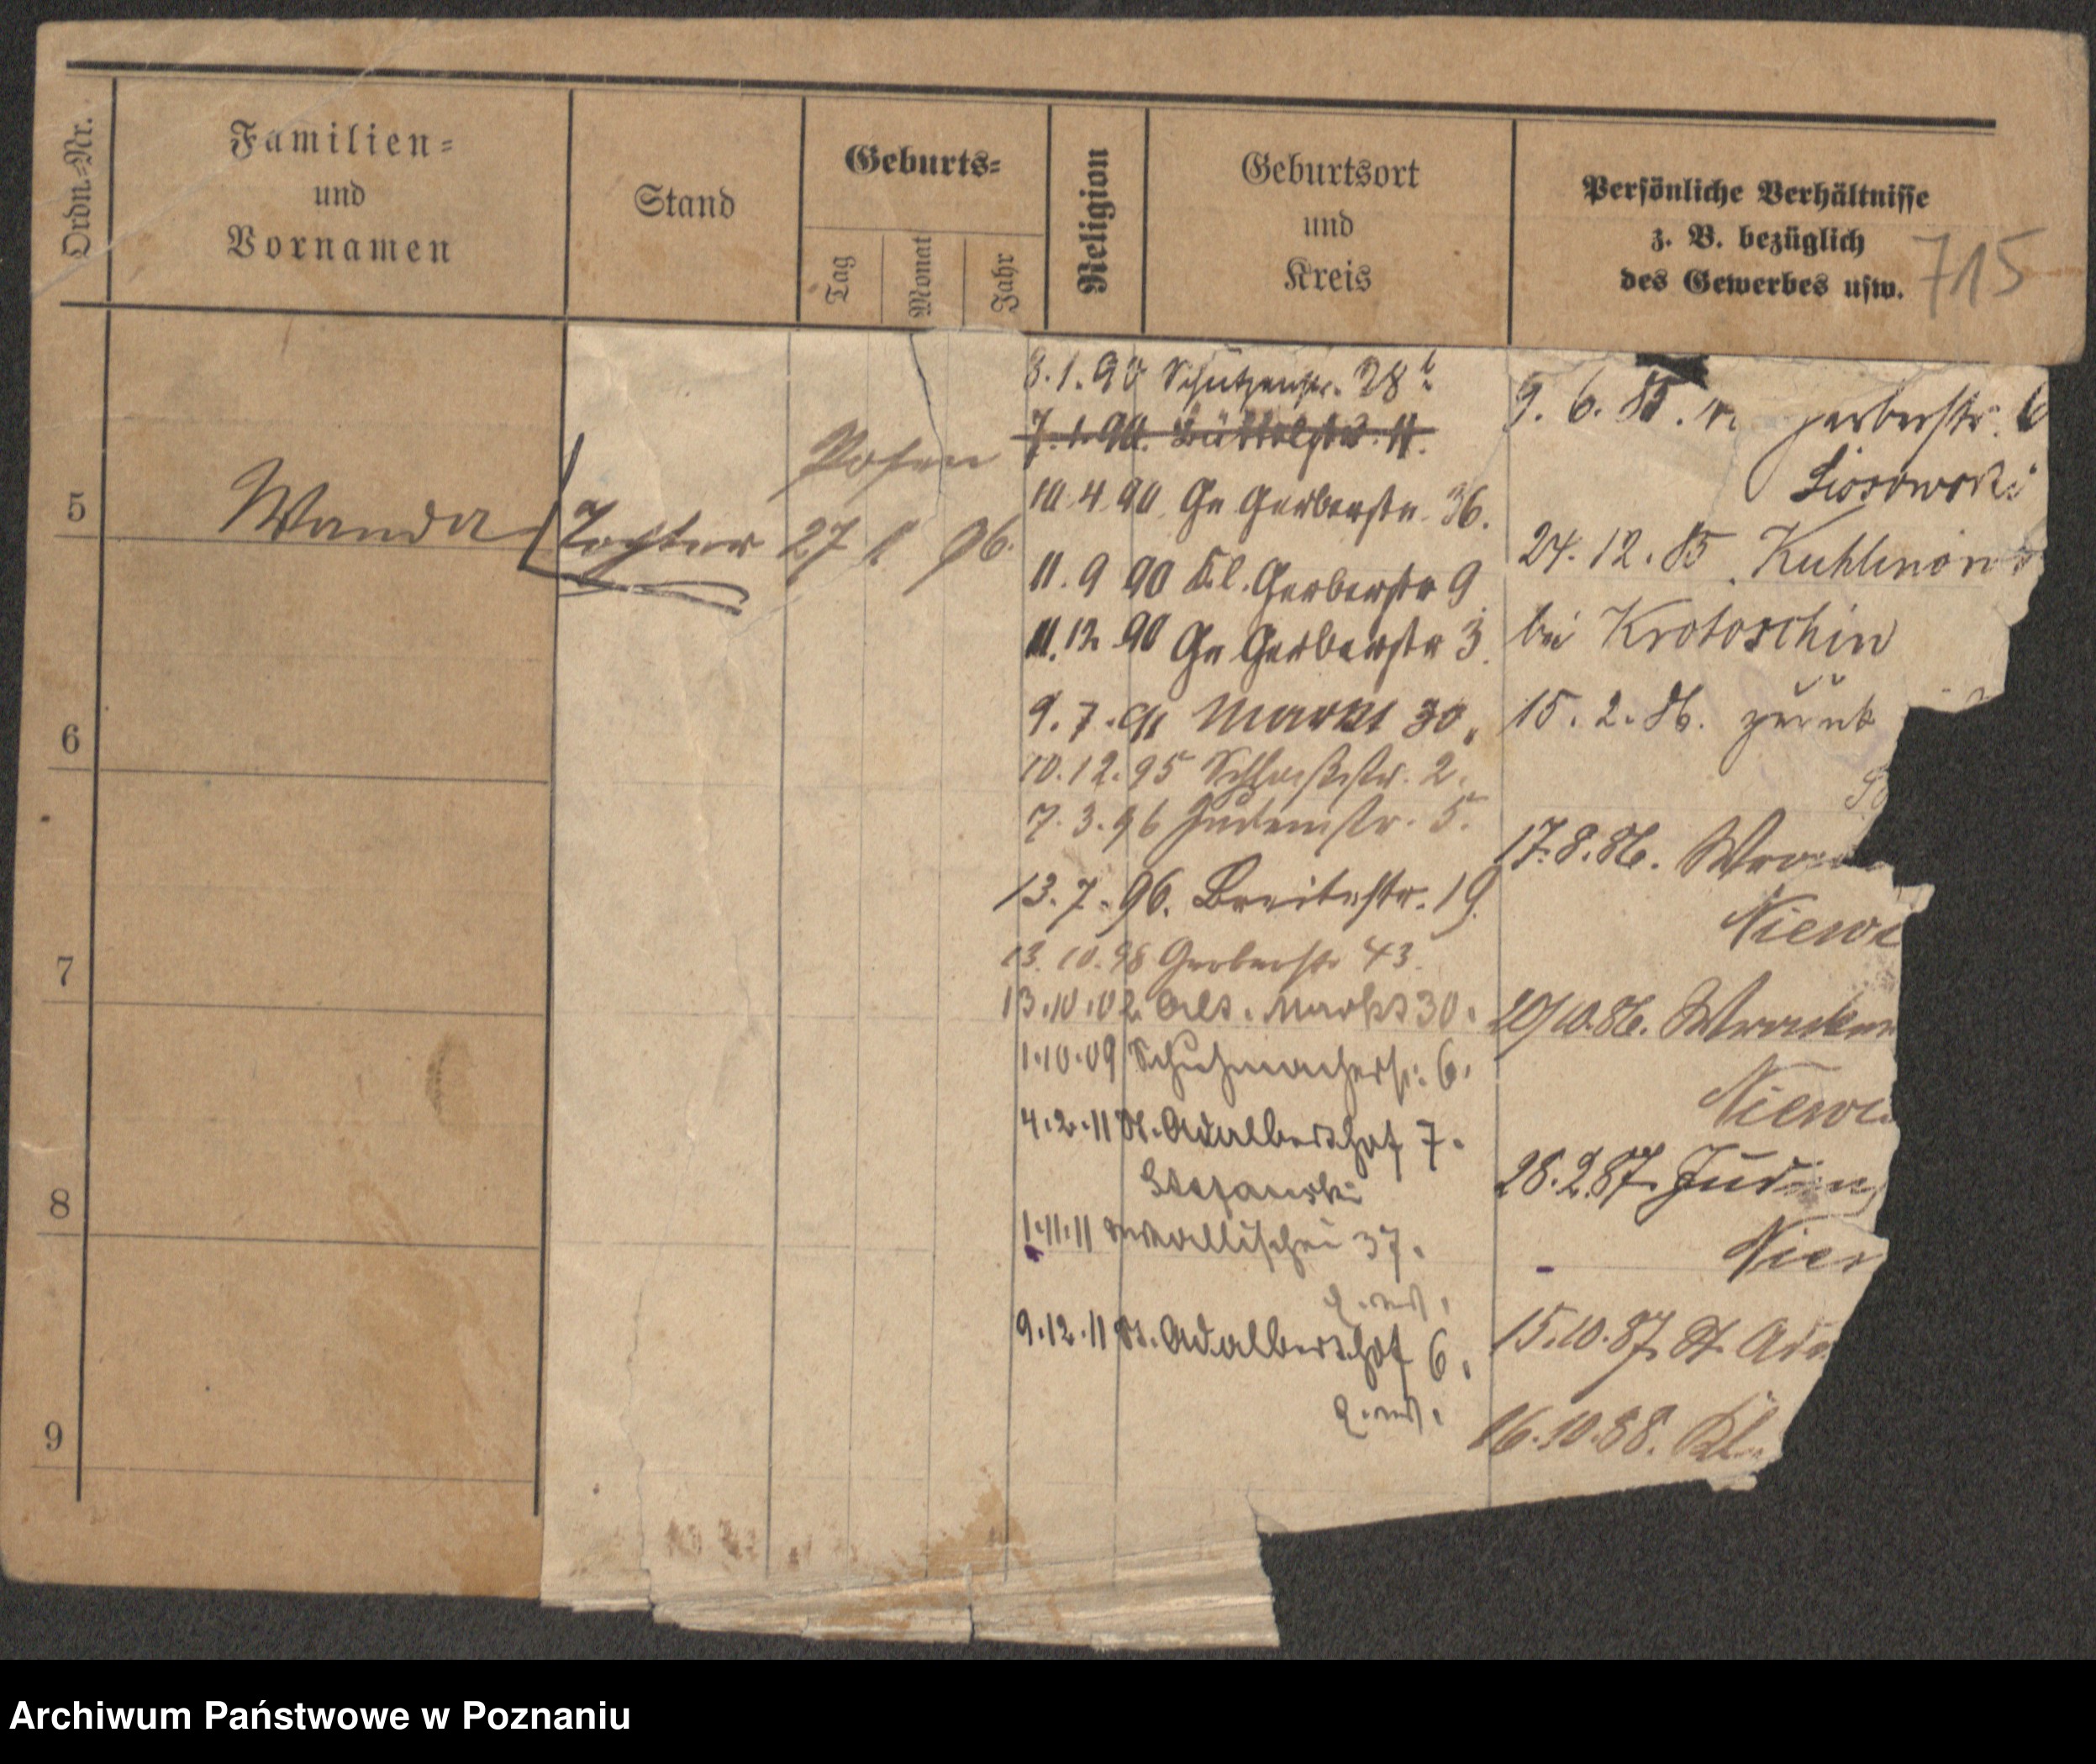 Ordn.=Nr.
Familien=
und
Vornamen
Stand
Geburts=
Tag
Monat
Jahr
Religion
Geburtsort
und
Kreis
Persönliche Verhältnisse
z. B. bezüglich
des Gewerbes usw.
715
5
Wanda
Tochter
Posen
27 1 96.
6
7
8
9
3.1.90 Schützenstr. 28 b
7.1.90. Büttelstr. 11.
10.4.90. Gr Gerberstr. 36.
11.9 90 Kl. Gerberstr 9
11.12 90 Gr Gerberstr 3.
9.7.91 Markt 30.
10.12.95 Schloßstr. 2.
7.3.96 Judenstr. 5.
13.7.96. Breitestr. 19.
13.10.98 Gerberstr 43.
13.10.02. Alt. Markt 30.
1.10.09 Schuhmacherstr. 6.
4.2.11 St. Adalberthof 7.
Stefanski
1.11.11 Wallischei 37.
9.12.11 St. Adalberthof 6.
9.6.85. Gerberstr. 6
24.12.85. Kuhlmon
bei Krotoschin
15.2.86. zurück
17.8.86. Wron
Niewi
20/10.86. Wronker
Niewi
28.2.87. Juden
Niew
15.10.87. St. Ada
16.10.88. Kl.
Archiwum Państwowe w Poznaniu